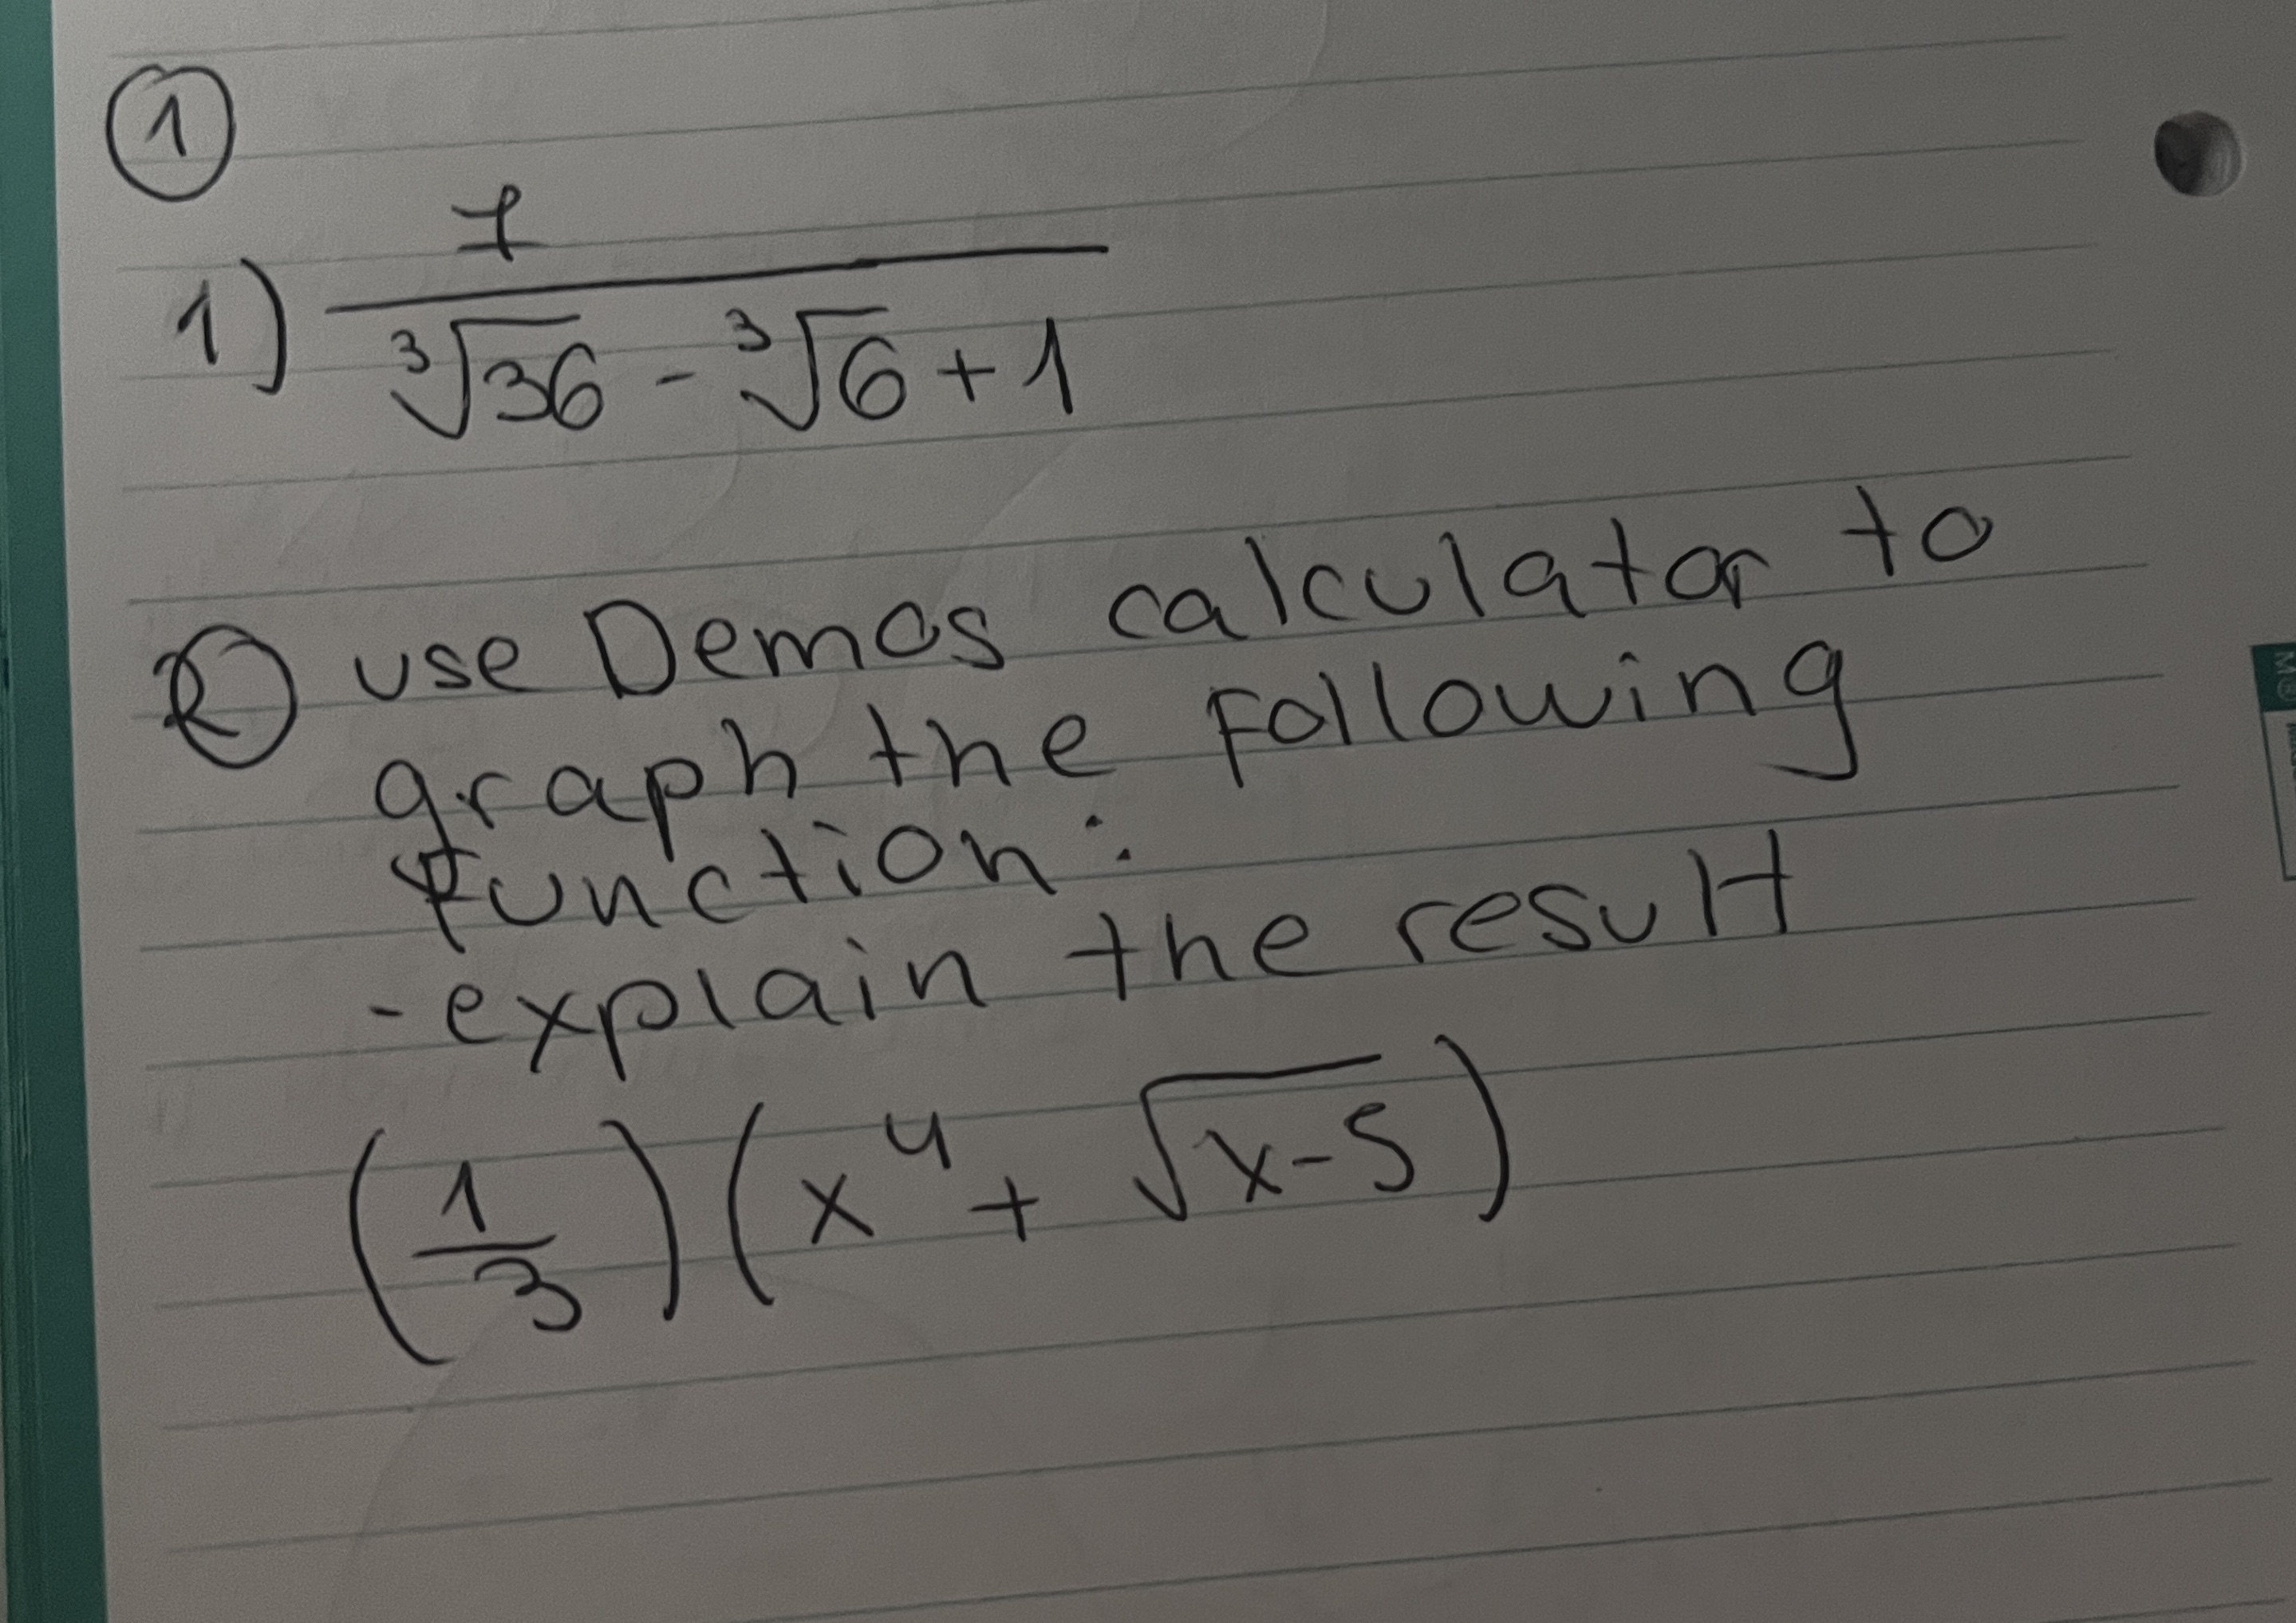 ①
1) 7 / (∛36 - ∛6 + 1)
② use Demos calculator to
graph the following
function:
- explain the result
(1/3)(x⁴ + √(x-5))